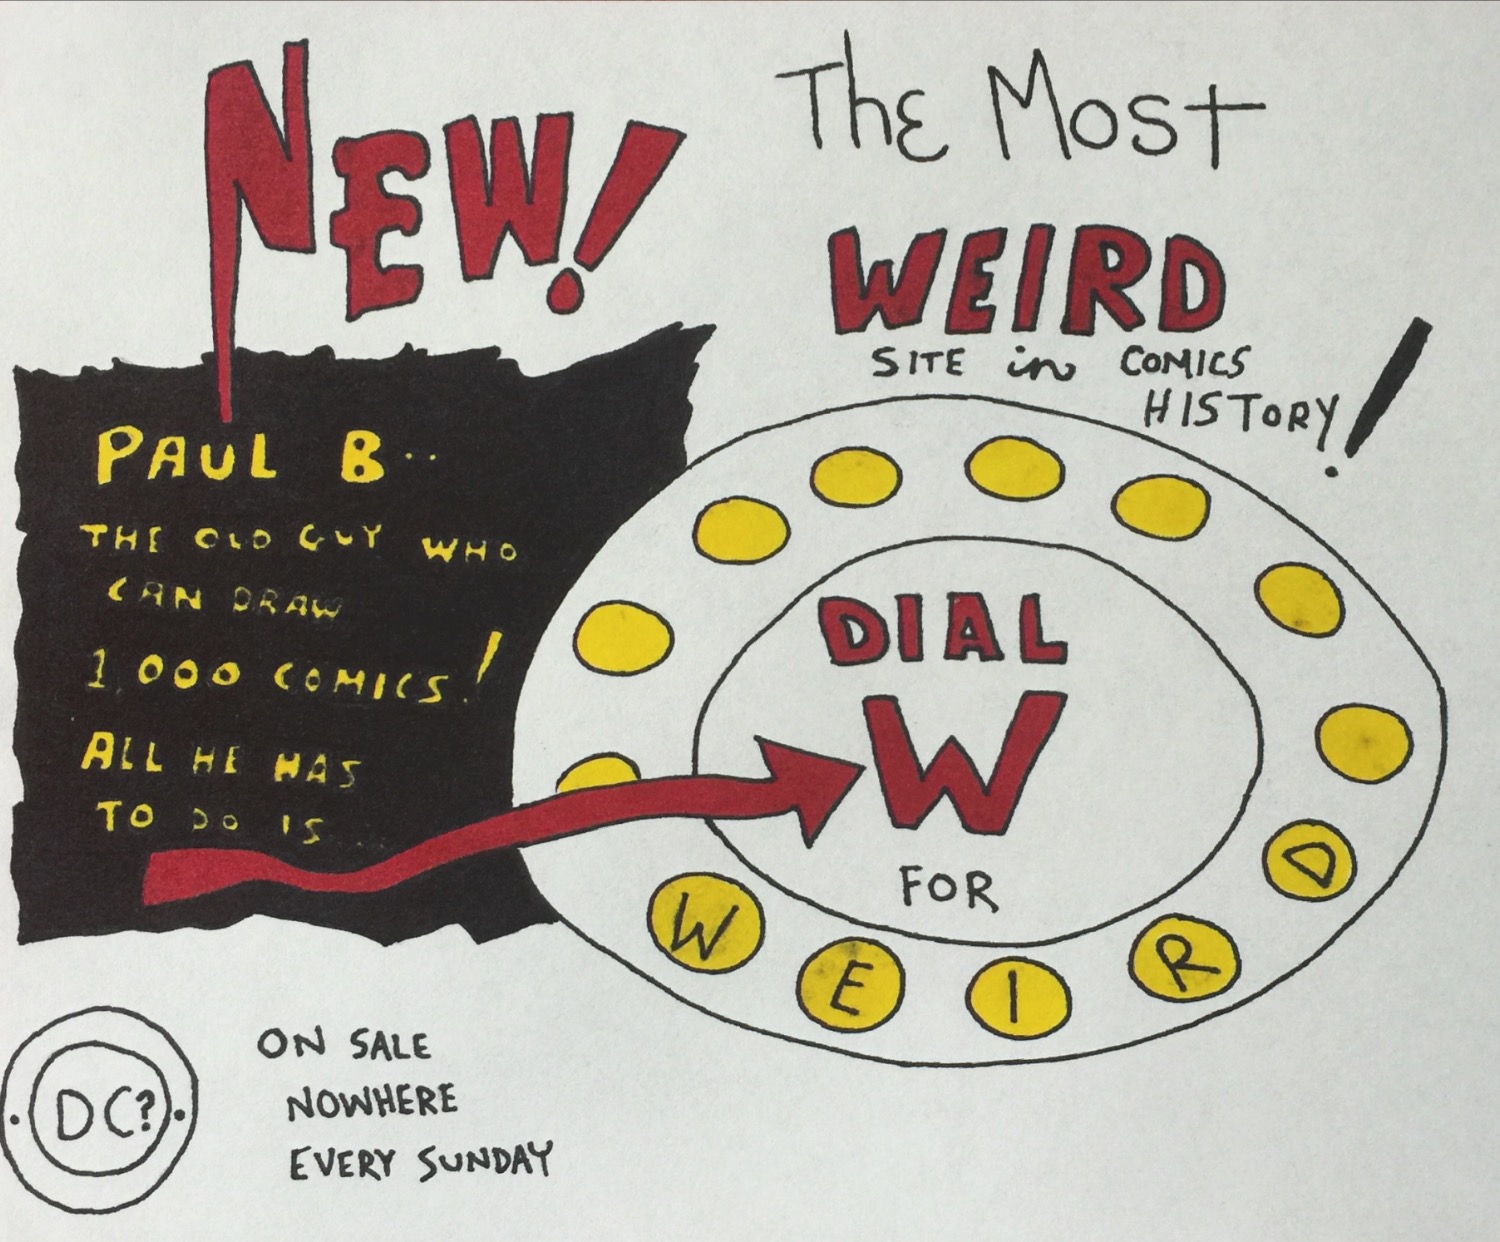 NEW!
PAUL B..
THE OLD GUY WHO
CAN DRAW
1,000 COMICS!
ALL HE HAS
TO DO IS...
The MosT
WEIRD
SITE in COMICS
HISTORY!
DIAL
W
FOR
W E I R D
DC?
ON SALE
NOWHERE
EVERY SUNDAY